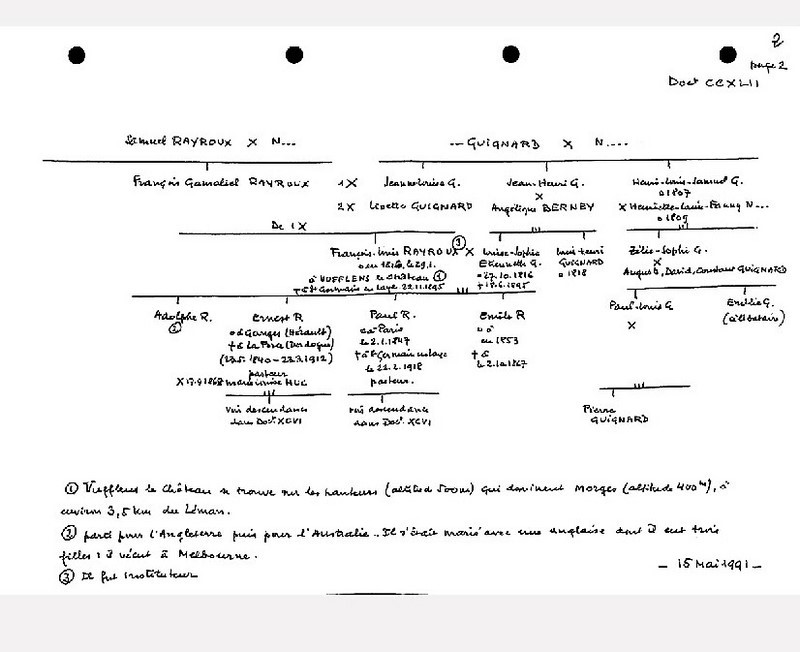 2
page 2
Doct CCXLII
Samuel RAYROUX X N...
--- GUIGNARD X N....
François Gamaliel RAYROUX 1X Jeanne Louise G.
Jean-Henri G.
Henri-Louis-Samuel G.
o 1807
2X Lisette GUIGNARD
X
Angélique BERNEY
X Henriette-Louise-Fanny N...
o 1809
De 1X
François-Louis RAYROUX ③ X
o en 1816, le 29.1.
à VUFFLENS le Château ①
+ à St Germain en Laye 22.11.1895
Louise-Sophie
Etiennette G.
o 27.10.1816
+ 18.6.1895
Louis Henri
GUIGNARD
o 1818
Zélie-Sophie G.
X
August, David, Constant GUIGNARD
Adolphe R.
②
Ernest R
o à Ganges (Hérault)
+ à La Force (Dordogne)
(23.5.1840 - 22.3.1912)
pasteur
X 17.9.1868 Marie Louise HUC
Paul R.
o à Paris
le 2.1.1847
+ à St Germain en Laye
le 21.2.1918
pasteur.
Emile R
o à
en 1853
+ à
le 2.10.1867
Paul-Louis G
X
Emilie G.
(célibataire)
Voir descendance
dans Doct XCVI
voir descendance
dans Doct XCVI
Pierre
GUIGNARD
① Vufflens le Château se trouve sur les hauteurs (altitude 500m) qui dominent Morges (altitude 400m), à
environ 3,5 km du Léman.
② parti pour l'Angleterre puis pour l'Australie.. Il s'était marié avec une anglaise dont il eut trois
filles : il vécut à Melbourne.
③ Il fut instituteur
— 15 Mai 1991 —